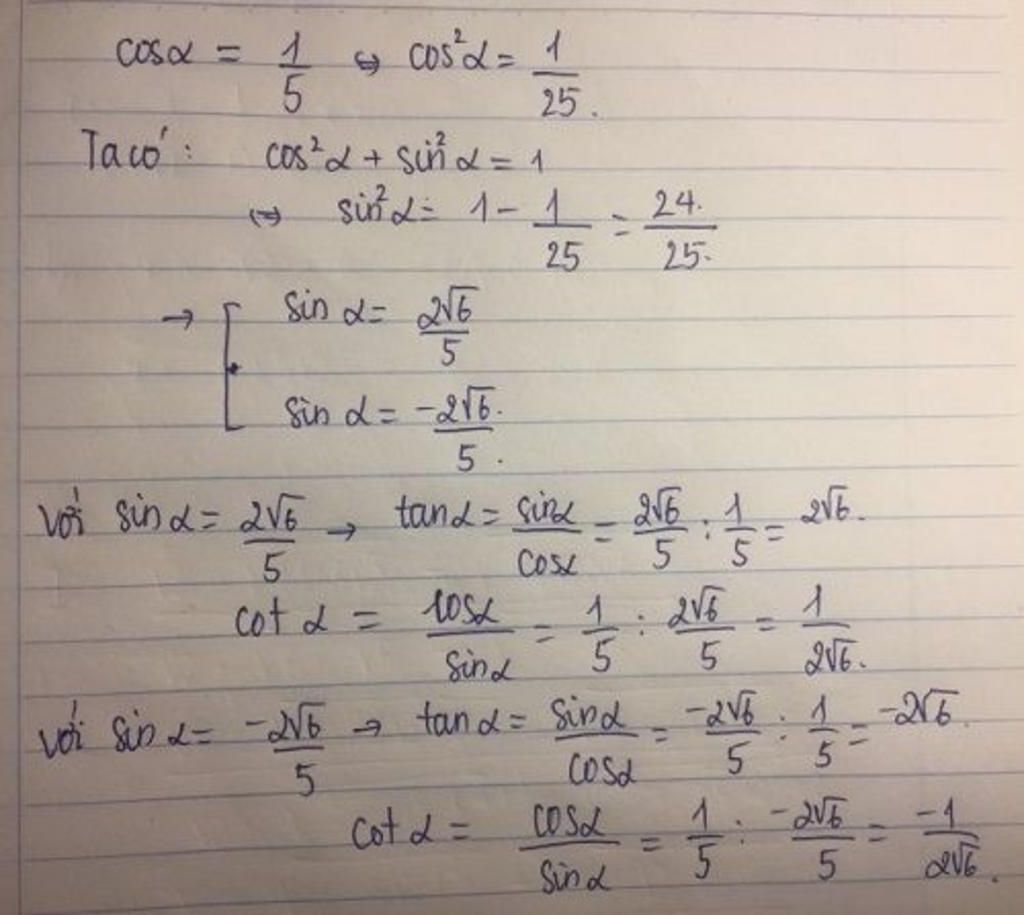 cosα = 1/5 ⇔ cos²α = 1/25.
Ta có: cos²α + sin²α = 1
⇔ sin²α = 1 - 1/25 = 24/25.
→ [ sin α = 2√6/5
sin α = -2√6/5.
Với sin α = 2√6/5 → tan α = sinα/cosα = 2√6/5 : 1/5 = 2√6.
cot α = cosα/sinα = 1/5 : 2√6/5 = 1/2√6.
với sin α = -2√6/5 → tan α = sinα/cosα = -2√6/5 : 1/5 = -2√6.
cot α = cosα/sinα = 1/5 : -2√6/5 = -1/2√6.